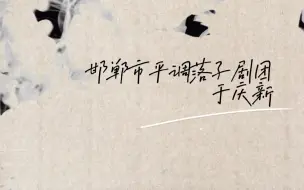 邯郸市平调落子剧团
于庆新